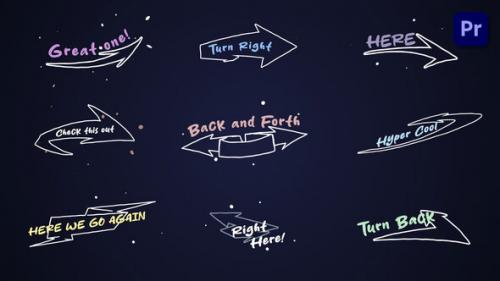 Great one!
Turn Right
HERE
Pr
Check this out
Back and Forth
Hyper Cool
HERE WE GO AGAIN
Right
Here!
Turn Back